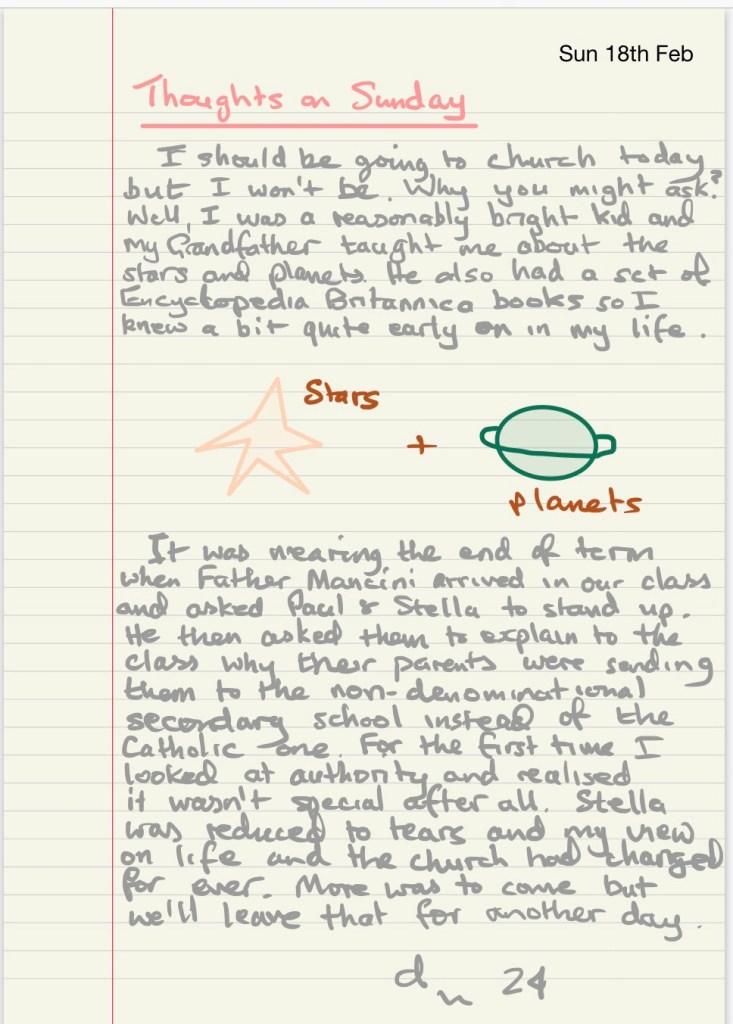 Sun 18th Feb
Thoughts on Sunday
I should be going to church today
but I won't be. Why you might ask?
Well, I was a reasonably bright kid and
my Grandfather taught me about the
stars and planets. He also had a set of
Encyclopedia Britannica books so I
knew a bit quite early on in my life.
Stars
+
planets
It was nearing the end of term
when Father Mancini arrived in our class
and asked Paul & Stella to stand up.
He then asked them to explain to the
class why their parents were sending
them to the non-denominational
secondary school instead of the
Catholic one. For the first time I
looked at authority and realised
it wasn't special after all. Stella
was reduced to tears and my view
on life and the church had changed
for ever. More was to come but
we'll leave that for another day.
dn 24